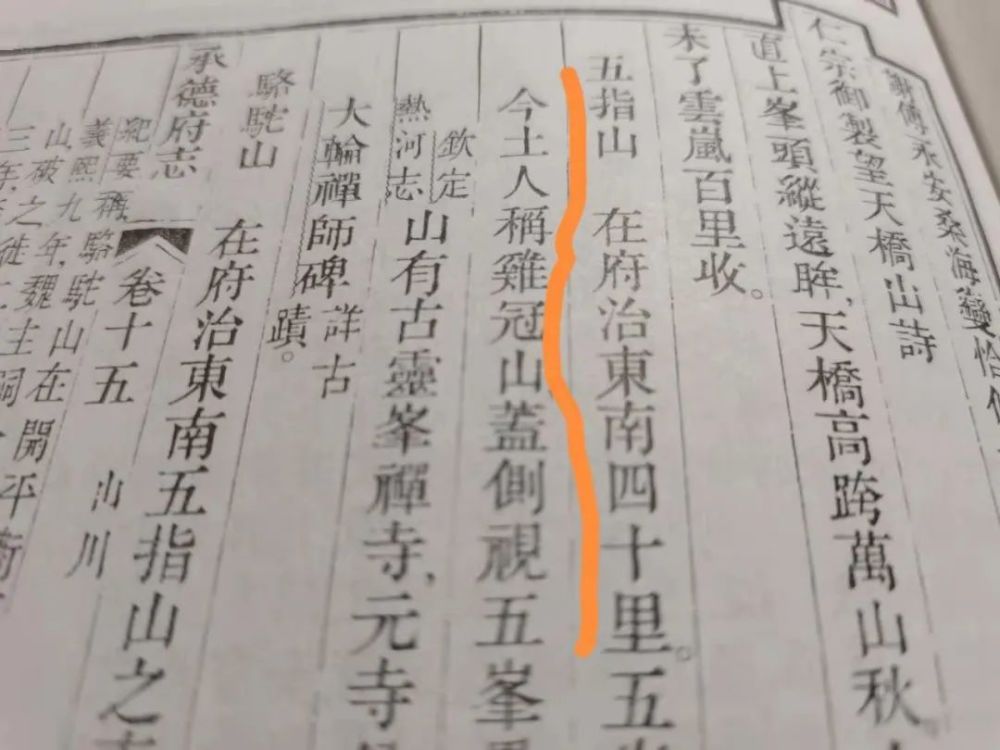 仁宗御製望天橋山詩
直上峯頭縱遠眸，天橋高跨萬山秋
未了雲嵐百里收。
五指山 在府治東南四十里。五
今土人稱雞冠山蓋側視五峯
欽定
熱河志 山有古靈峯禪寺，元寺
大輪禪師碑 詳古
蹟。
駱駝山 在府治東南五指山之
承德府志 卷十五 山川
紀要稱駱駝山在
義熙九年，魏主嗣
山破之
三年